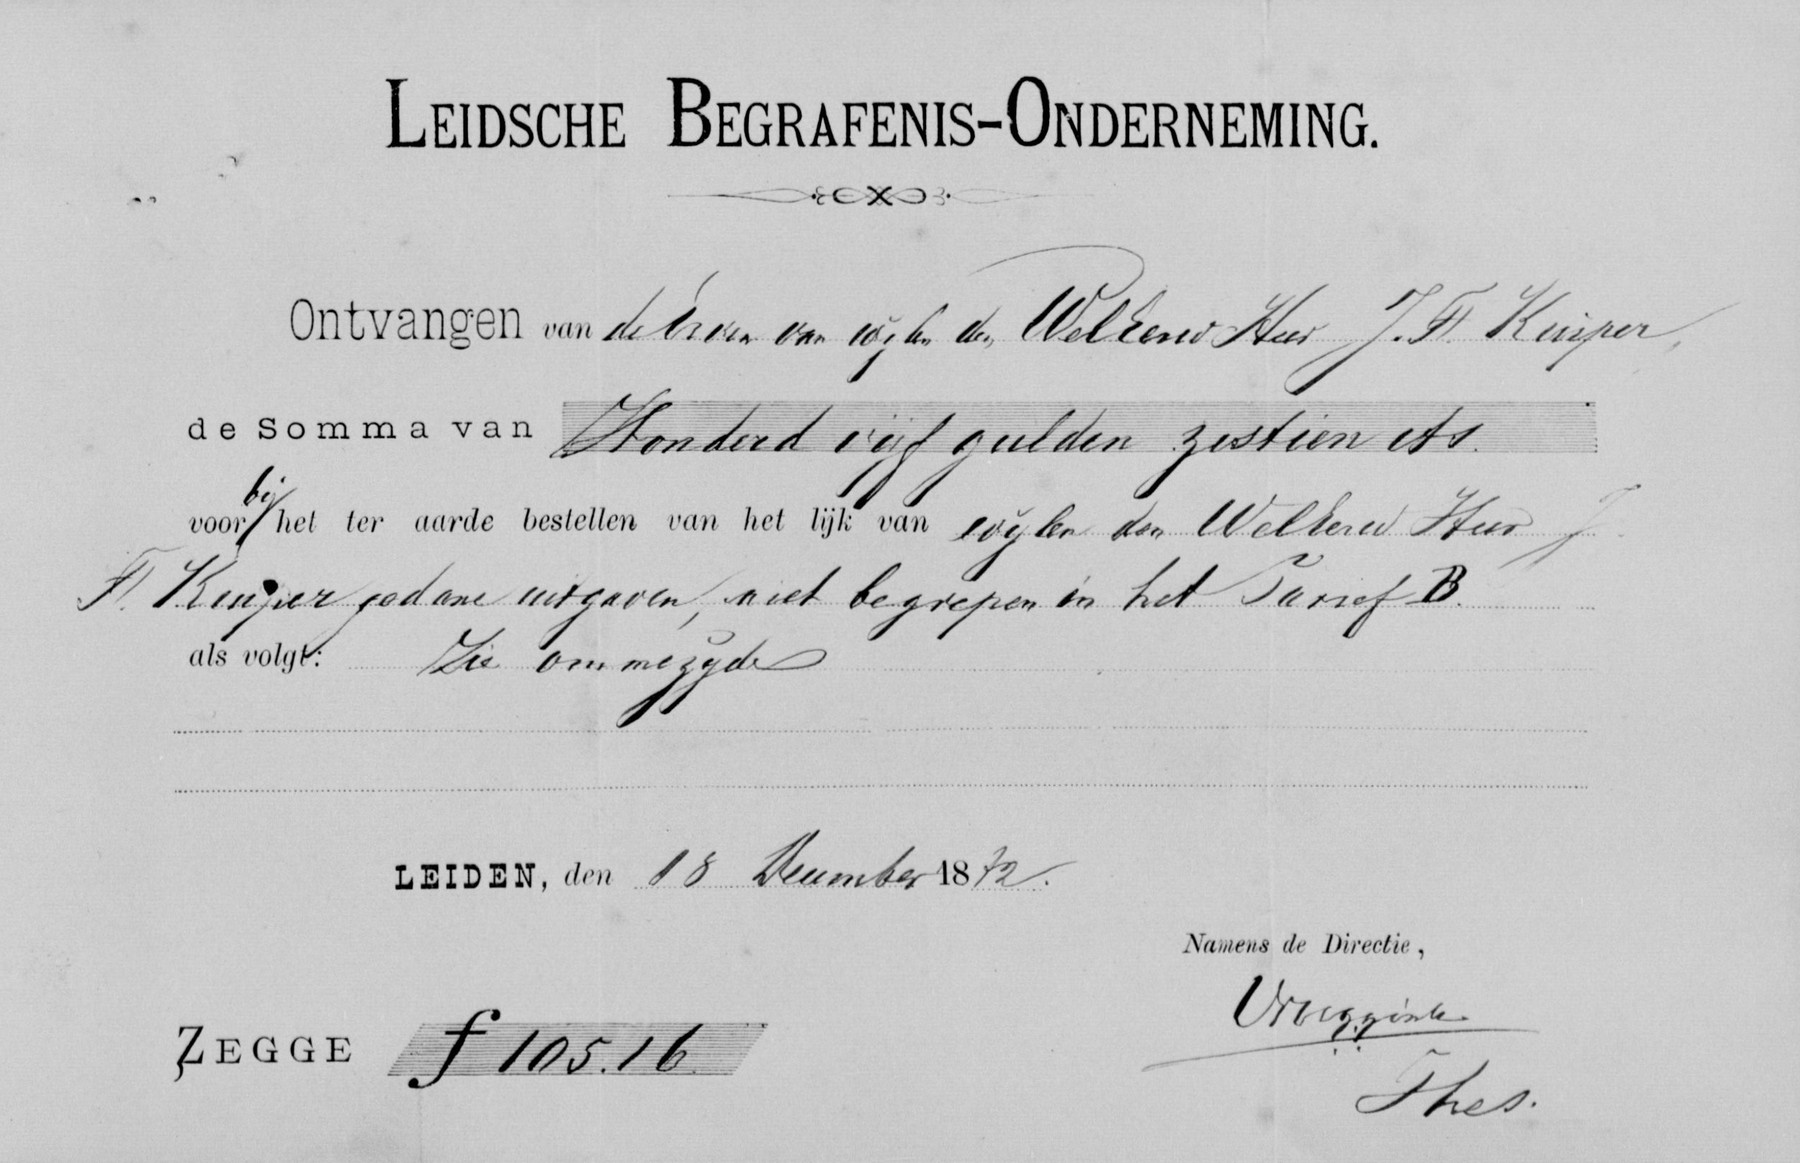 LEIDSCHE BEGRAFENIS-ONDERNEMING.
Ontvangen van de Erven van wijlen den WelEerw Heer J. F. Kuiper,
de Somma van Honderd vijf gulden zestien cts.
bij
voor het ter aarde bestellen van het lijk van wijlen den WelEerw Heer J
F. Kuiper gedane uitgaven, niet begrepen in het Tarief B.
als volgt: Zie ommezijde
LEIDEN, den 18 December 1872.
Namens de Directie,
ZEGGE f 105.16
Thes.